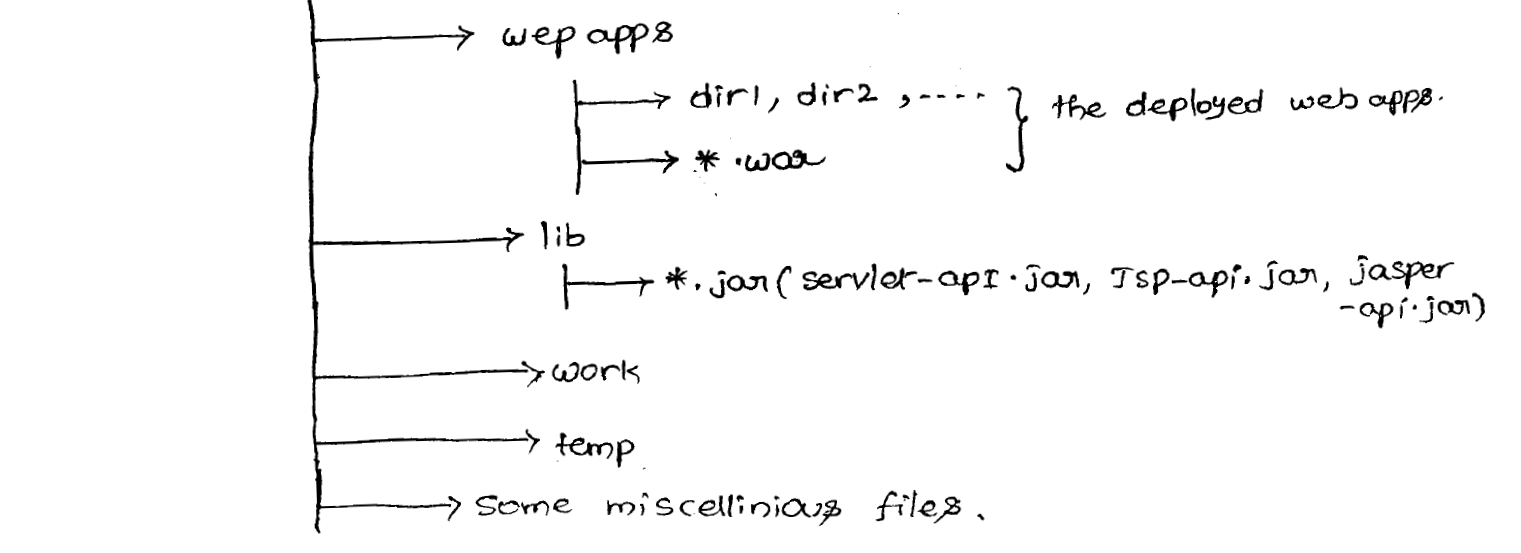 wep apps
dir1, dir2 ,---- } the deployed web apps.
*.war
lib
*.jar( servlet-apI.jar, Jsp-api.jar, jasper
-api.jar)
work
temp
Some miscellinious files.